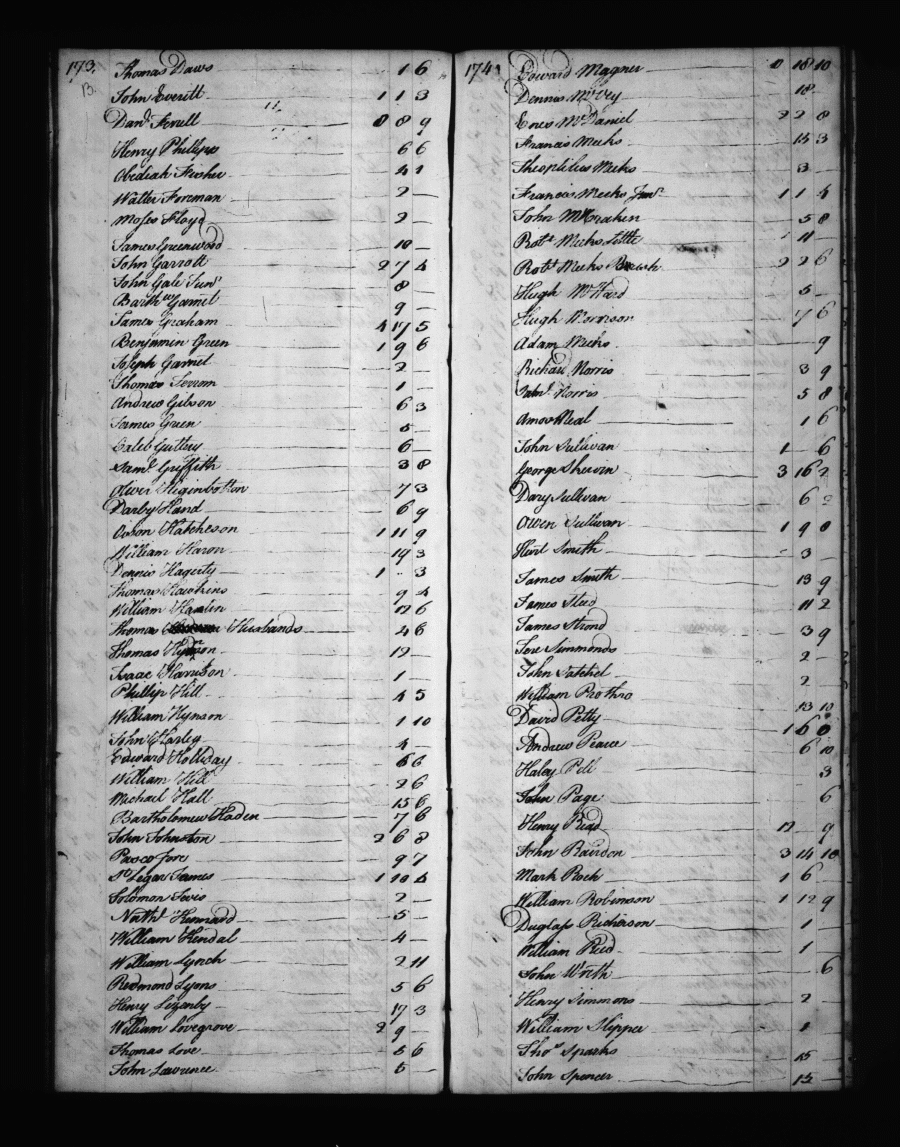 173.
B.
Thomas Daws 1 6
John Everitt 1 1 3
Danl Ferell 0 8 9
Henry Phillips 6 6
Obediah Fisher 4 1
Walter Foreman 2 —
Moses Floyd 2 —
James Greenwood 10 —
John Garrott 2 7 4
John Gale Junr 8 —
Barthw Garnet 9 —
James Graham 4 17 5
Benjamin Green 1 9 6
Joseph Garnet 2 —
Thomas 1 —
Andrew Gibson 6 3
James Green 5 —
Caleb Guttery 6 —
Saml Griffith 3 8
Oliver Higinbotton 7 3
Darby Hand 6 9
Hatcheson 1 11 9
William Haron 19 3
Dennis Hagerty 1 - 3
Thomas Hawkins 9 4
William Hamlin 12 6
Thomas Husbands 4 6
Thomas Hynson 12 —
Isaac Harrison 1 —
Phillip Hill 4 5
William Hynson 1 10
John Harley 4 —
Edward Holliday 6 6
William Hill 2 6
Michael Hall 15 6
Bartholomew Haden 7 6
John Johnston 2 6 8
Pasco Jore 9 7
St Legar James 1 10 4
Solomon Jevis 2 —
Nathl Kennard 5 —
William Kendal 4 —
William Lynch 2 11
Redmond Lyons 5 6
Henry Lezenby 17 3
William Lovegrove 2 9 —
Thomas Love 5 6
John Lawrence 5 —
174
Edward Magner 0 18 10
Dennis McVey 18 —
Enes McDaniel 2 2 8
Francis Meeks 15 3
Theophilus Meeks 3 —
Francis Meeks Junr 1 1 4
John McCrackin 5 8
Robt Meeks Little 11 —
Robt Meeks 2 2 6
Hugh McHard 5 —
Hugh Morrison 7 6
Adam Meeks 9
Richard Norris 3 9
Norris 5 8
Amos Neal 1 6
John Sullivan 1 — 6
George Shervin 3 16 2
Dary Sullivan 6 2
Owen Sullivan 1 9 0
Smith 3 —
James Smith 13 9
James Steed 11 2
James Strond 3 9
Jere Simmonds 2 —
John Satchel 2 —
William Prothro 13 10
David Petty 1 6 0
Andrew Pearce 6 10
Haley Pell 3
John Page 6
Henry Read 12 — 9
John Reardon 3 14 10
Mark Roch 1 6 —
William Robinson 1 12 9
Duglass Richerson 1 —
William Reed 1 —
John Worth 6
Henry Simmons 2 —
William Slipper 1 —
Thos Sparks 15 —
John Spencer 15 —